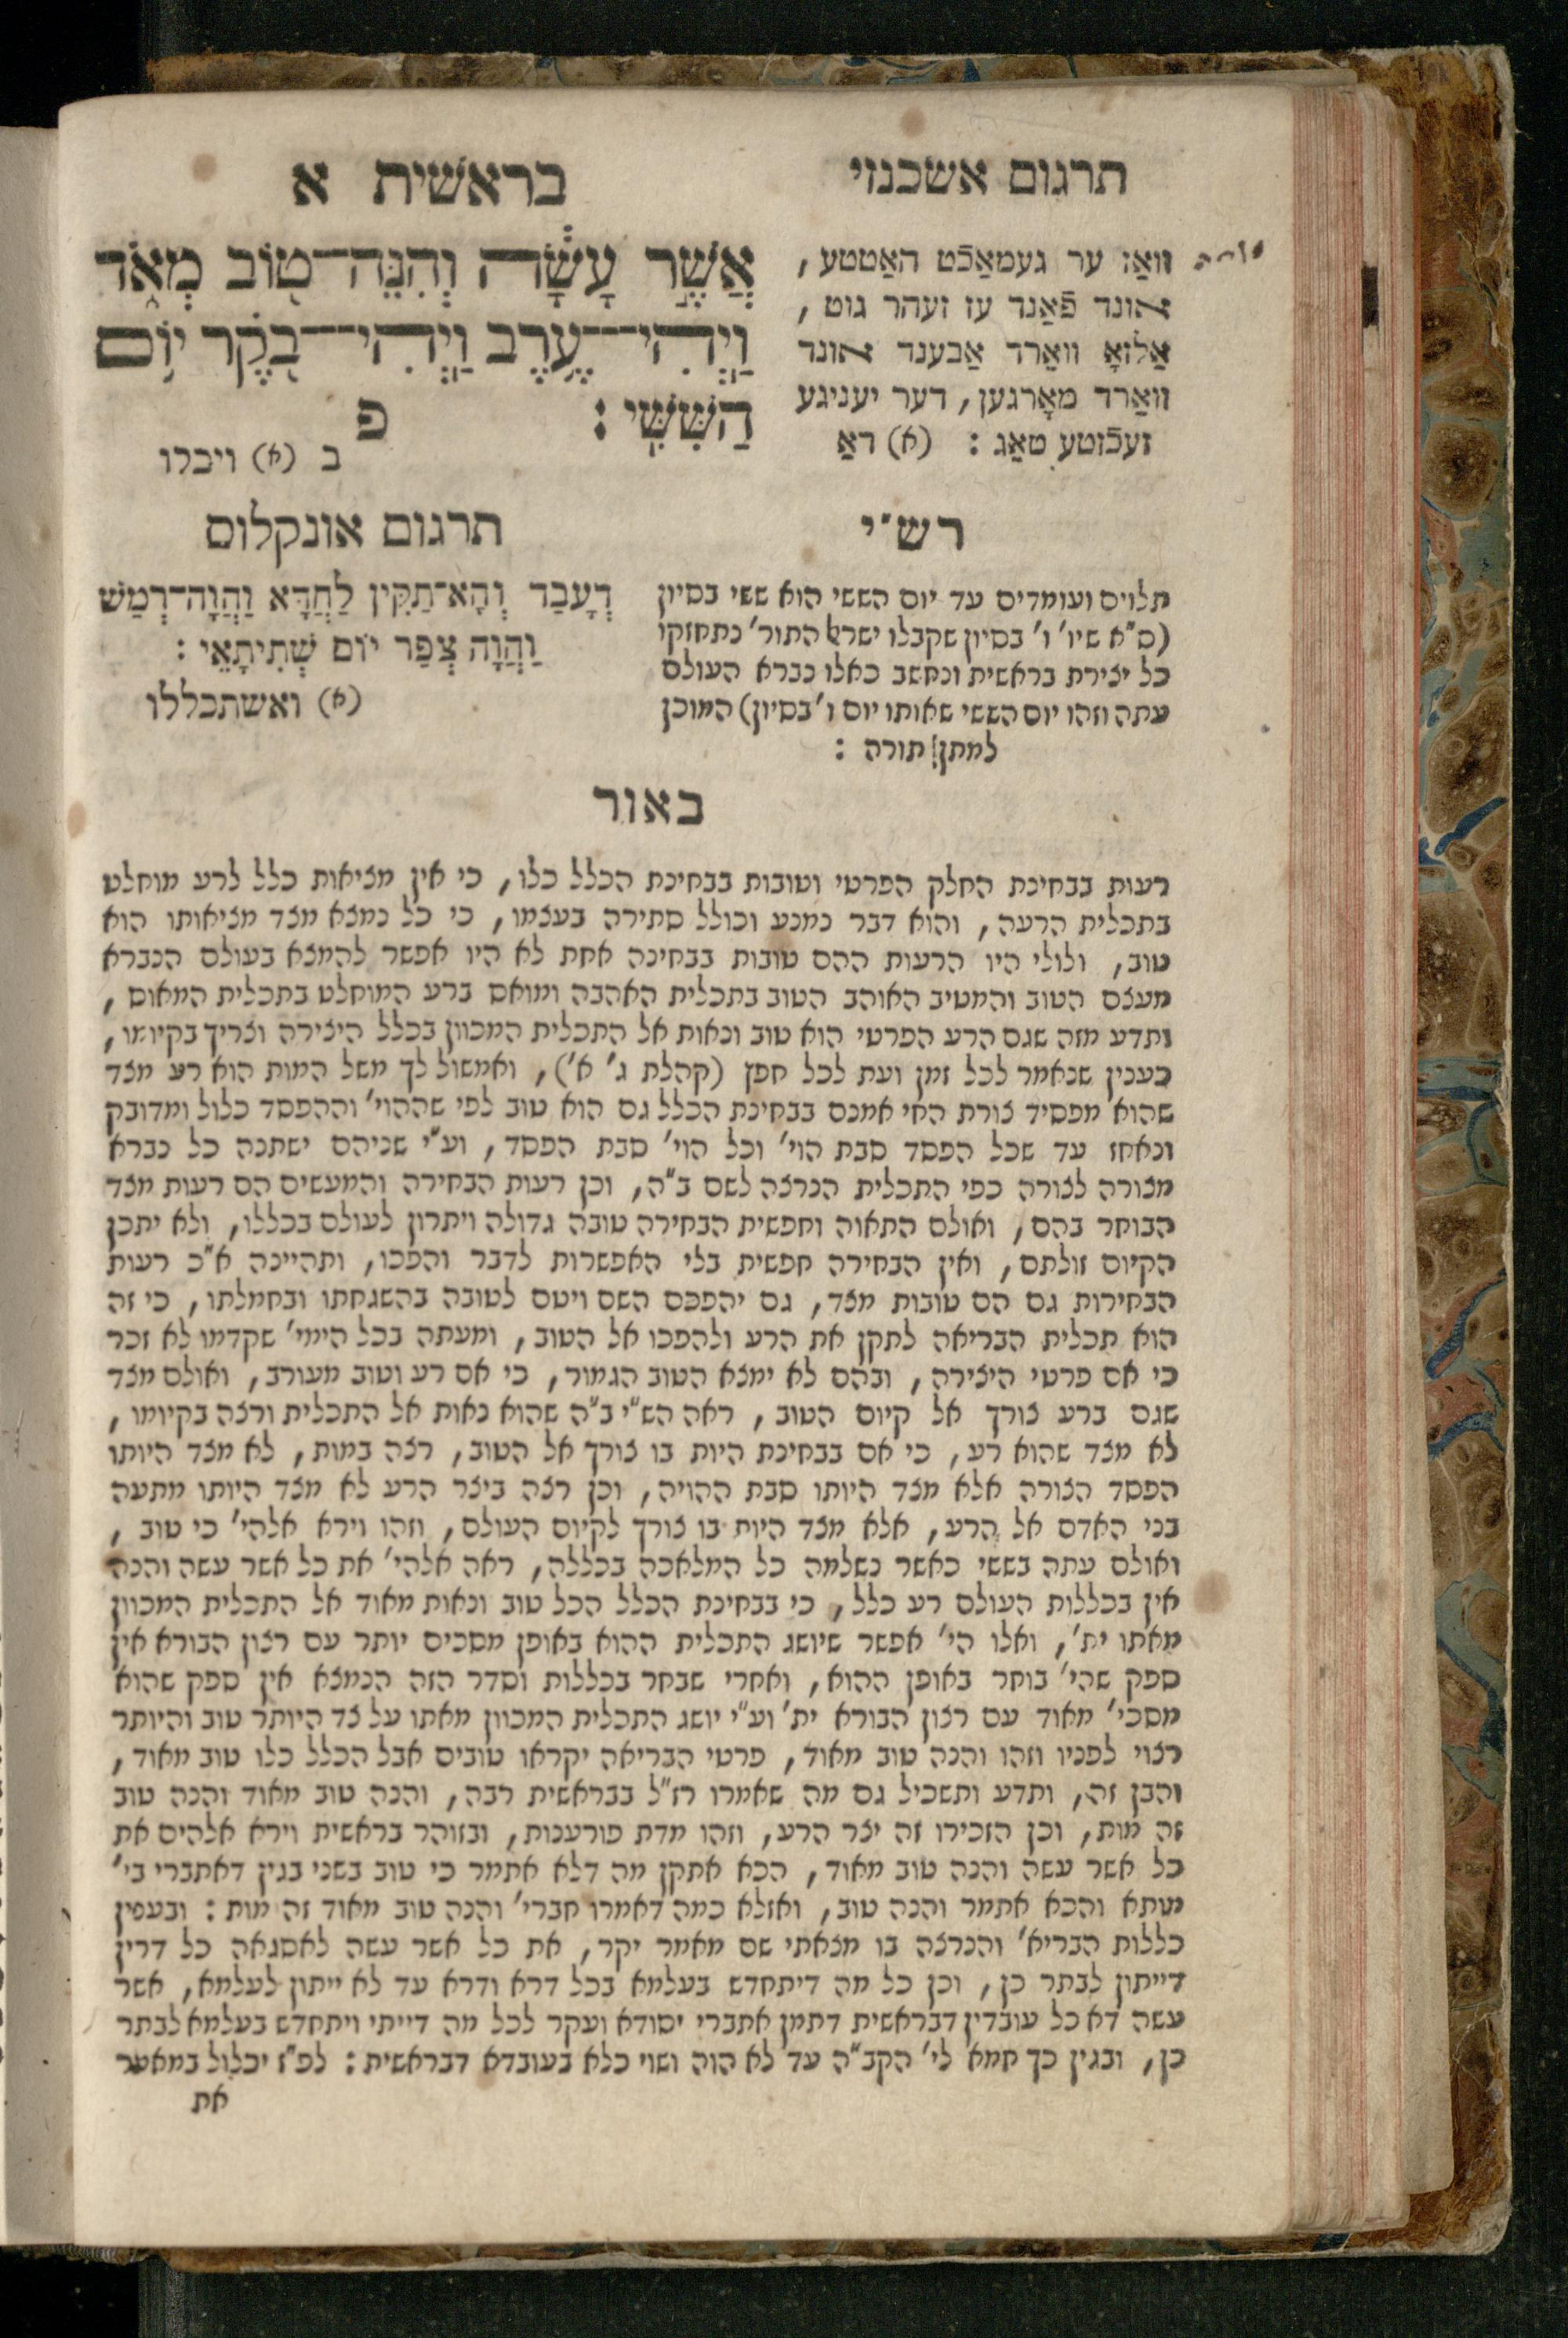 תרגום אשכנזי
בראשית א
וואַז ער געמאַכֿט האַטטע,
אונד פֿאַנד עז זעהר גוט,
אַלזאָ וואַרד אַבענד אונד
וואַרד מאָרגען, דער יעניגע
זעכֿזטע טאַג : (א) דאַ
אֲשֶׁר עָשָׂה וְהִנֵּה־טוֹב מְאֹד
וַיְהִי־עֶרֶב וַיְהִי־בֹקֶר יוֹם
הַשִּׁשִּׁי : פ
ב (א) ויכלו
רש״י
תלוים ועומדים עד יום הששי הוא ששי בסיון
(ס״א שיו׳ ו׳ בסיון שקבלו ישראל התור׳ נתחזקו
כל יצירת בראשית ונחשב כאלו נברא העולם
עתה וזהו יום הששי שאותו יום ו׳ בסיון) המוכן
למתן תורה :
תרגום אונקלוס
דְעָבַד וְהָא־תַקִּין לַחֲדָא וַהֲוָה־רְמַשׁ
וַהֲוָה צְפַר יוֹם שְׁתִיתָאֵי :
(א) ואשתכללו
באור
רעות בבחינת החלק הפרטי וטובות בבחינת הכלל כלו, כי אין מציאות כלל לרע מוחלט
בתכלית הרעה, והוא דבר נמנע וכולל סתירה בעצמו, כי כל נמצא מצד מציאותו הוא
טוב, ולולי היו הרעות ההם טובות בבחינה אחת לא היו אפשר להמצא בעולם הנברא
מעצם הטוב והמטיב האוהב הטוב בתכלית האהבה ומואס ברע המוחלט בתכלית המאוס,
ותדע מזה שגם הרע הפרטי הוא טוב ונאות אל התכלית המכוון בכלל היצירה וצריך בקיומו,
כענין שנאמר לכל זמן ועת לכל חפץ (קהלת ג׳ א׳), ואמשול לך משל המות הוא רע מצד
שהוא מפסיד צורת החי אמנם בבחינת הכלל גם הוא טוב לפי שההוי׳ וההפסד כלול ומדובק
ונאחז עד שכל הפסד סבת הוי׳ וכל הוי׳ סבת הפסד, וע״י שניהם ישתנה כל נברא
מצורה לצורה כפי התכלית הנרצה לשם ב״ה, וכן רעות הבחירה והמעשים הם רעות מצד
הבוחר בהם, ואולם התאוה וחפשית הבחירה טובה גדולה ויתרון לעולם בכללו, ולא יתכן
הקיום זולתם, ואין הבחירה חפשית בלי האפשרות לדבר והפכו, ותהיינה א״כ רעות
הבחירות גם הם טובות מצד, גם יהפכם השם ויטם לטובה בהשגחתו ובחמלתו, כי זה
הוא תכלית הבריאה לתקן את הרע ולהפכו אל הטוב, ומעתה בכל הימי׳ שקדמו לא זכר
כי אם פרטי היצירה, ובהם לא ימצא הטוב הגמור, כי אם רע וטוב מעורב, ואולם מצד
שגם ברע צורך אל קיום הטוב, ראה הש״י ב״ה שהוא נאות אל התכלית ורצה בקיומו,
לא מצד שהוא רע, כי אם בבחינת היות בו צורך אל הטוב, רצה במות, לא מצד היותו
הפסד הצורה אלא מצד היותו סבת ההויה, וכן רצה ביצר הרע לא מצד היותו מתעה
בני האדם אל הרע, אלא מצד היות בו צורך לקיום העולם, וזהו וירא אלהי׳ כי טוב,
ואולם עתה בששי כאשר נשלמה כל המלאכה בכללה, ראה אלהי׳ את כל אשר עשה והנה
אין בכללות העולם רע כלל, כי בבחינת הכלל הכל טוב ונאות מאוד אל התכלית המכוון
מאתו ית׳, ואלו הי׳ אפשר שיושג התכלית ההוא באופן מסכים יותר עם רצון הבורא אין
ספק שהי׳ בוחר באופן ההוא, ואחרי שבחר בכללות וסדר הזה הנמצא אין ספק שהוא
מסכי׳ מאוד עם רצון הבורא ית׳ וע״י יושג התכלית המכוון מאתו על צד היותר טוב והיותר
רצוי לפניו וזהו והנה טוב מאוד, פרטי הבריאה יקראו טובים אבל הכלל כלו טוב מאוד,
והבן זה, ותדע ותשכיל גם מה שאמרו רז״ל בבראשית רבה, והנה טוב מאוד והנה טוב
זה מות, וכן הזכירו זה יצר הרע, וזהו מדת פורענות, ובזוהר בראשית וירא אלהים את
כל אשר עשה והנה טוב מאוד, הכא אתקן מה דלא אתמר כי טוב בשני בגין דאתברי בי׳
מותא והכא אתמר והנה טוב, ואזלא כמה דאמרו חברי׳ והנה טוב מאוד זה מות : ובענין
כללות הבריא׳ והנרצה בו מצאתי שם מאמר יקר, את כל אשר עשה לאסגאה כל דרין
דייתון לבתר כן, וכן כל מה דיתחדש בעלמא בכל דרא ודרא עד לא ייתון לעלמא, אשר
עשה דא כל עובדין דבראשית דתמן אתברי יסודא ועקר לכל מה דייתי ויתחדש בעלמא לבתר
כן, ובגין כך חמא לי׳ הקב״ה עד לא הוה ושוי כלא בעובדא דבראשית : לפ״ז יכלול במאמר
את